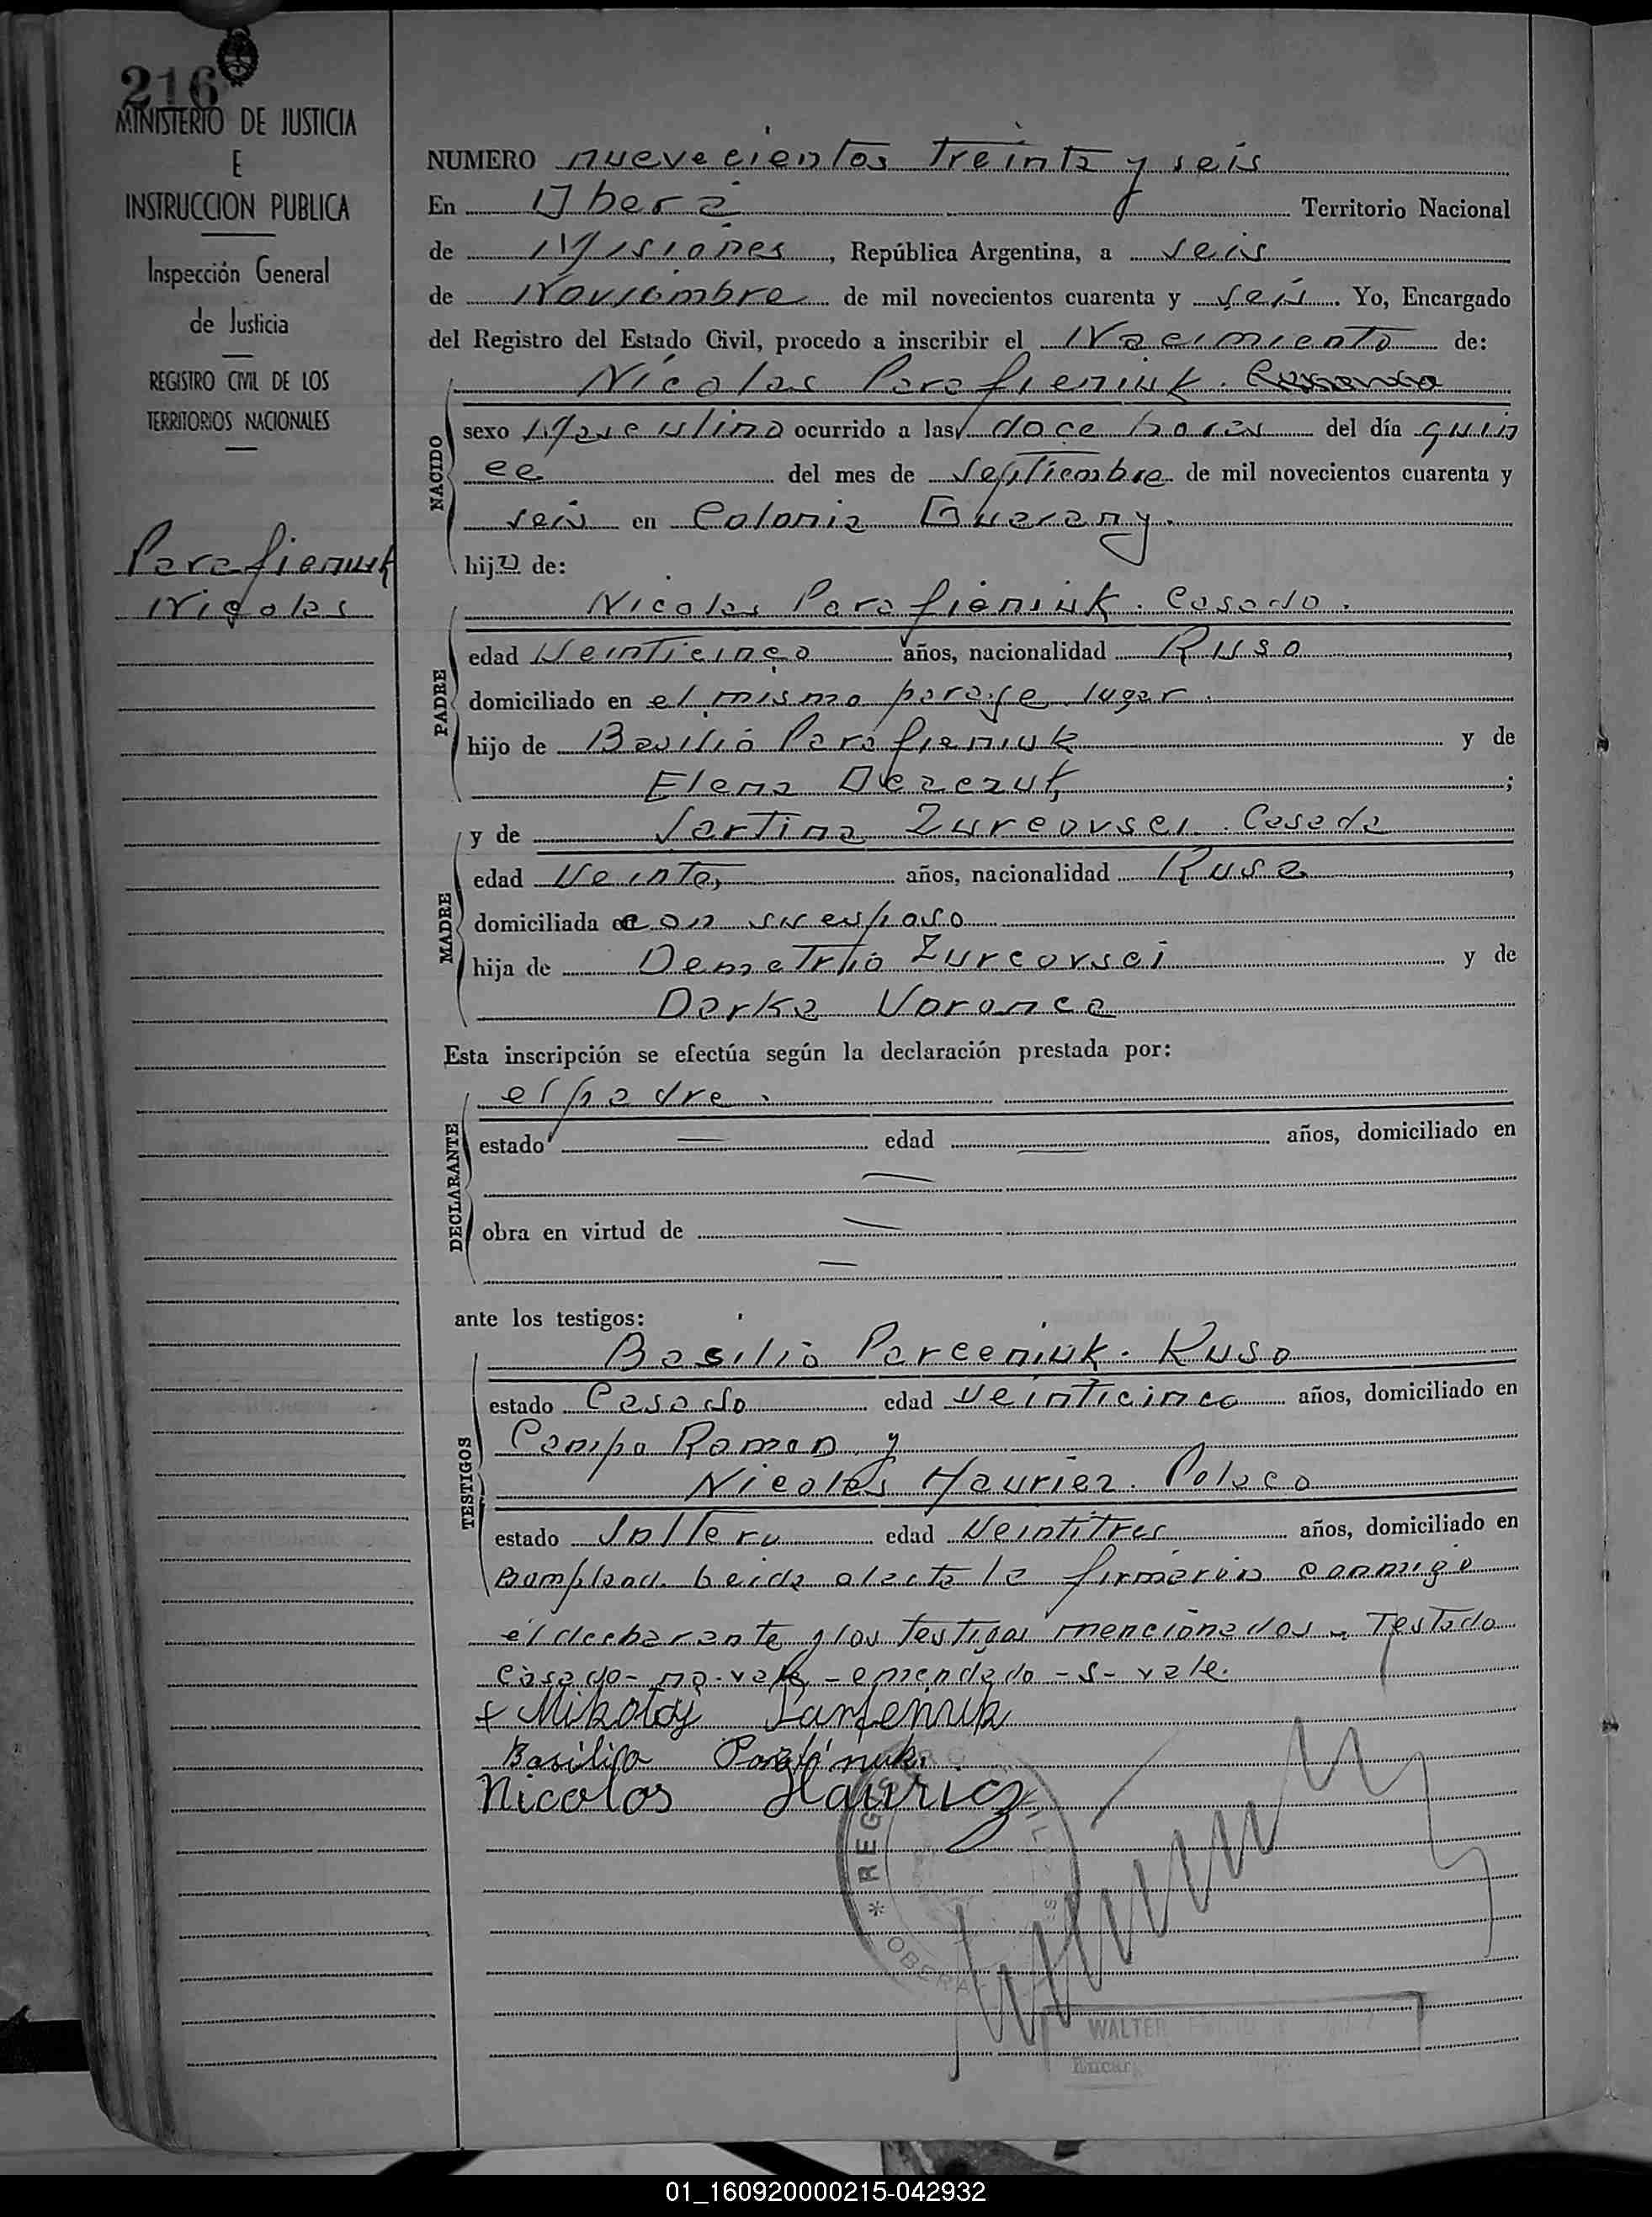 216
MINISTERIO DE JUSTICIA
E
INSTRUCCION PUBLICA
Inspección General
de Justicia
REGISTRO CIVIL DE LOS
TERRITORIOS NACIONALES
Parafieniuk
Nicolas
NUMERO nuevecientos treinta y seis
En Oberá Territorio Nacional
de Misiones, República Argentina, a seis
de Noviembre de mil novecientos cuarenta y seis. Yo, Encargado
del Registro del Estado Civil, procedo a inscribir el Nacimiento de:
Nicolas Parafieniuk.
NACIDO
sexo Masculino ocurrido a las doce horas del día quin
ce del mes de Septiembre de mil novecientos cuarenta y
seis en Colonia Guarany.
hijo de:
PADRE
Nicolas Parafieniuk. Casado.
edad Veinticinco años, nacionalidad Ruso,
domiciliado en el mismo paraje lugar.
hijo de Basilio Parafieniuk y de
Elena ;
MADRE
y de Zurcovsci. Casada
edad Veinte, años, nacionalidad Rusa,
domiciliada con su esposo
hija de Demetrio Zurcovsci y de
Darka Voronca
Esta inscripción se efectúa según la declaración prestada por:
DECLARANTE
el padre.
estado — edad — años, domiciliado en
—
obra en virtud de —
—
ante los testigos:
TESTIGOS
Basilio Parceniuk. Ruso
estado Casado edad Veinticinco años, domiciliado en
Campo Ramon y
Nicolas Hauriez. Polaco
estado Soltero edad Veintitres años, domiciliado en
Leida el acta la firmaron conmigo
el declarante y los testigos mencionados - Testado
Casado - no - vale - emendado - s - vale.
+ Mikołaj Parfeniuk
Basilio
Nicolas Hauricz
* REG
OBERA
WALTER
Encar
01_160920000215-042932